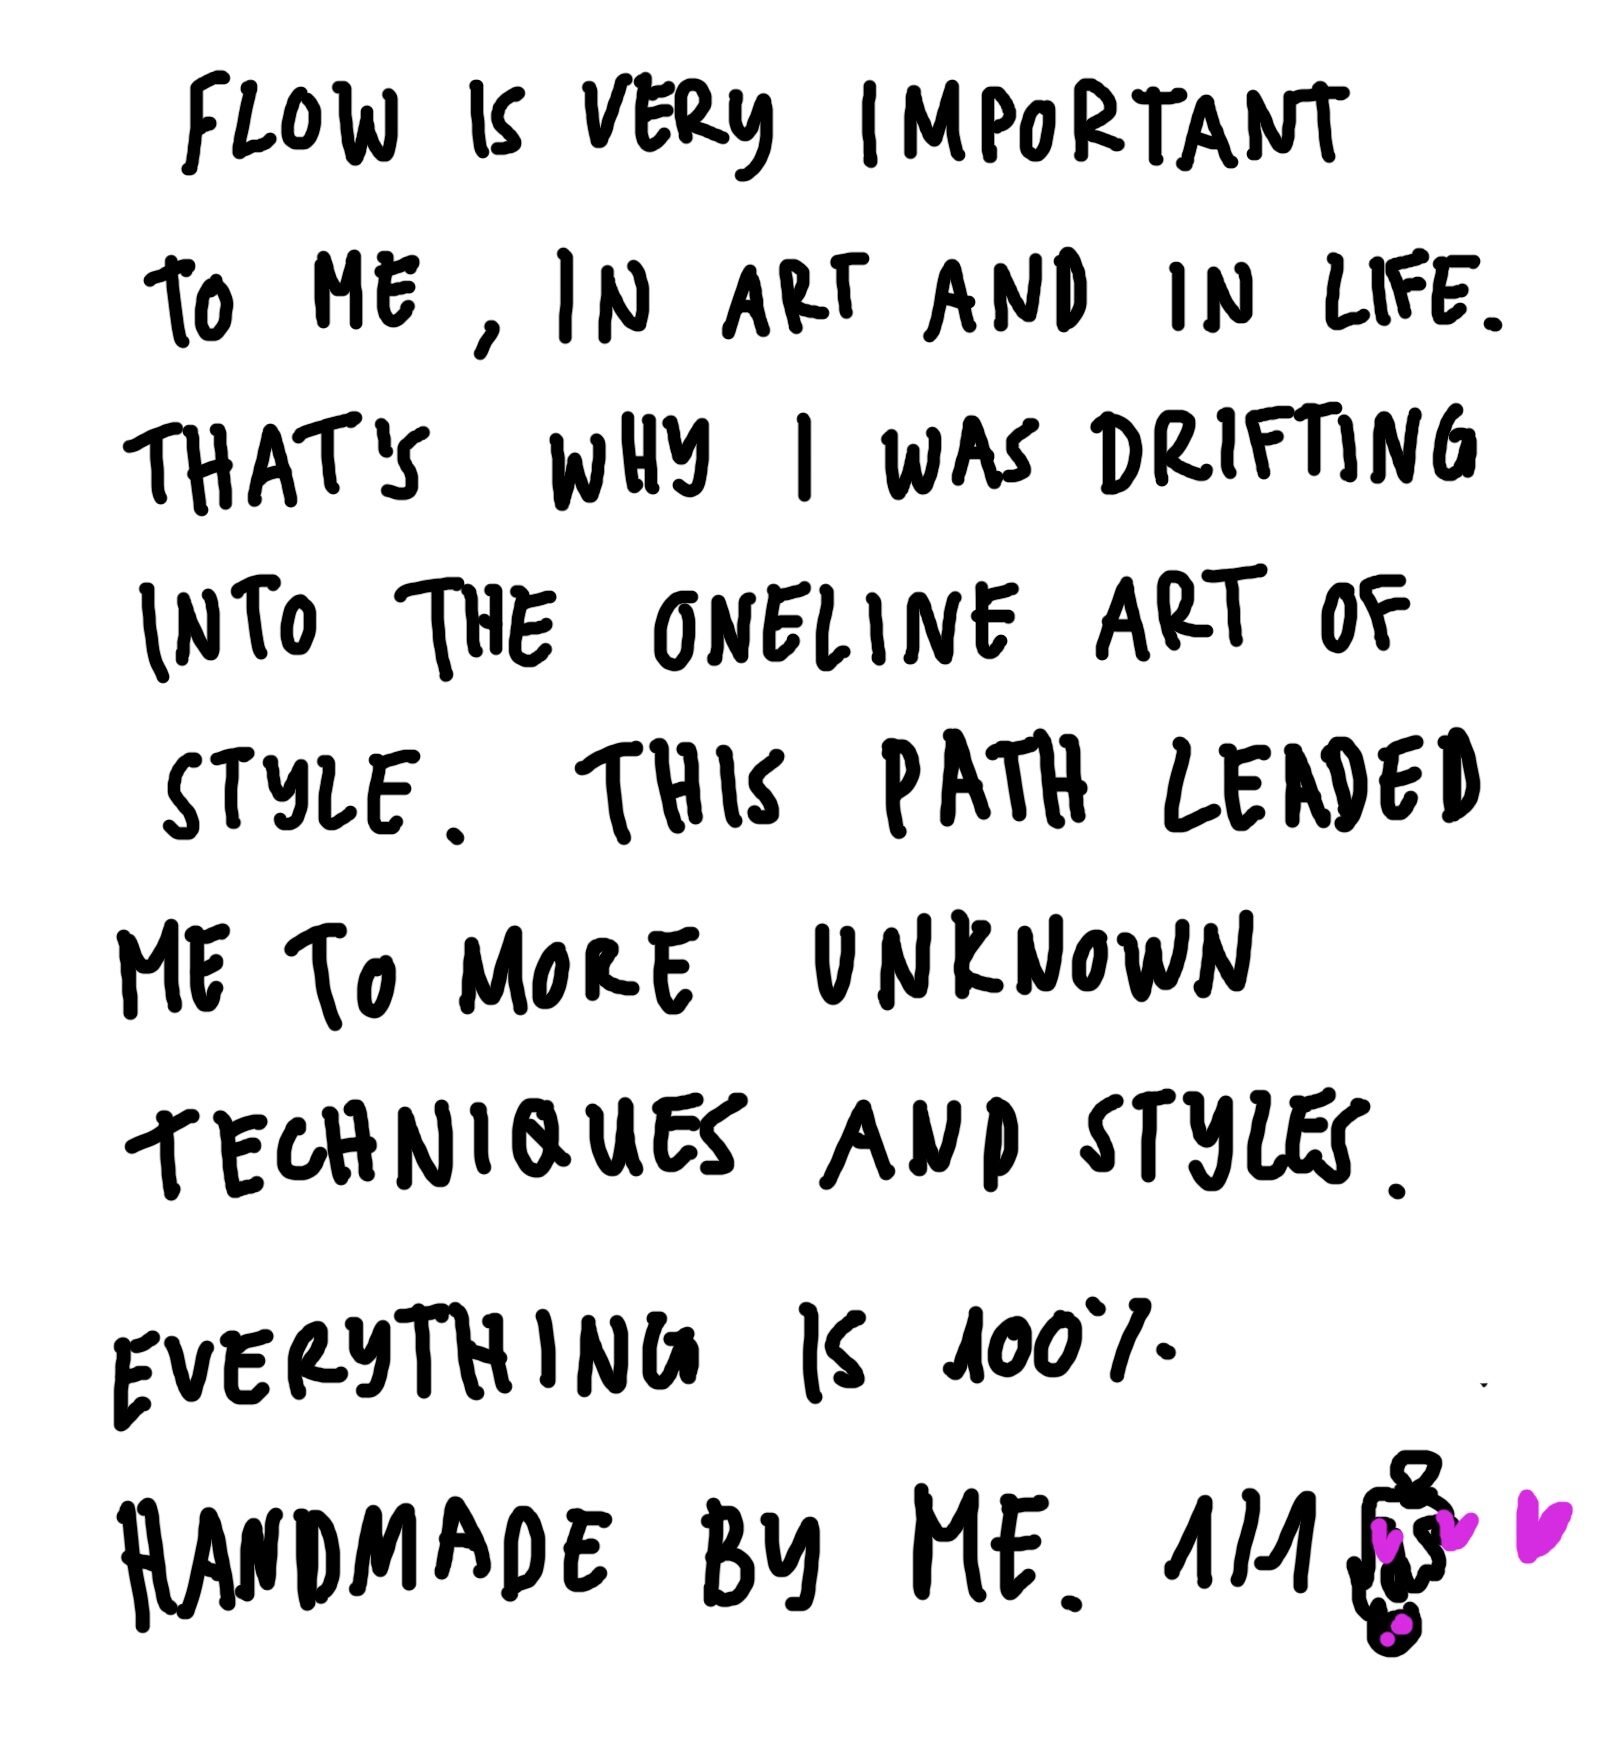 FLOW IS VERY IMPORTANT
TO ME, IN ART AND IN LIFE.
THAT'S WHY I WAS DRIFTING
INTO THE ONELINE ART OF
STYLE. THIS PATH LEADED
ME TO MORE UNKNOWN
TECHNIQUES AND STYLES.
EVERYTHING IS 100%
HANDMADE BY ME. 1/1